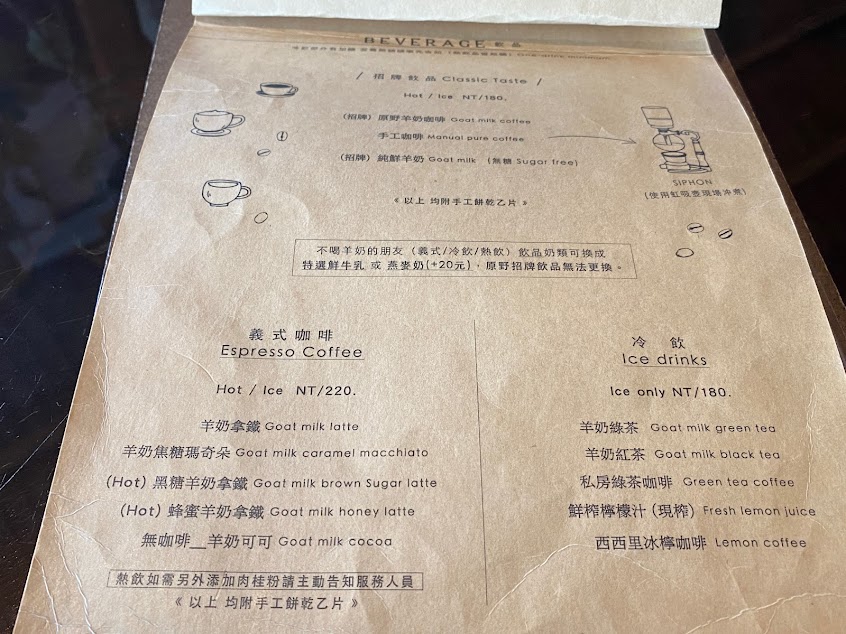 BEVERAGE 飲品
/ 招牌飲品 Classic Taste /
Hot / Ice NT/180.
(招牌) 原野羊奶咖啡 Goat milk coffee
手工咖啡 Manual pure coffee
(招牌) 純鮮羊奶 Goat milk (無糖 Sugar free)
SIPHON
(使用虹吸壺現場沖煮)
《 以上 均附手工餅乾乙片 》
不喝羊奶的朋友（義式/冷飲/熱飲）飲品奶類可換成
特選鮮牛乳 或 燕麥奶(+20元)，原野招牌飲品無法更換。
義式咖啡
Espresso Coffee
Hot / Ice NT/220.
羊奶拿鐵 Goat milk latte
羊奶焦糖瑪奇朵 Goat milk caramel macchiato
(Hot) 黑糖羊奶拿鐵 Goat milk brown Sugar latte
(Hot) 蜂蜜羊奶拿鐵 Goat milk honey latte
無咖啡__羊奶可可 Goat milk cocoa
熱飲如需另外添加肉桂粉請主動告知服務人員
《 以上 均附手工餅乾乙片 》
冷飲
Ice drinks
Ice only NT/180.
羊奶綠茶 Goat milk green tea
羊奶紅茶 Goat milk black tea
私房綠茶咖啡 Green tea coffee
鮮榨檸檬汁 (現榨) Fresh lemon juice
西西里冰檸咖啡 Lemon coffee